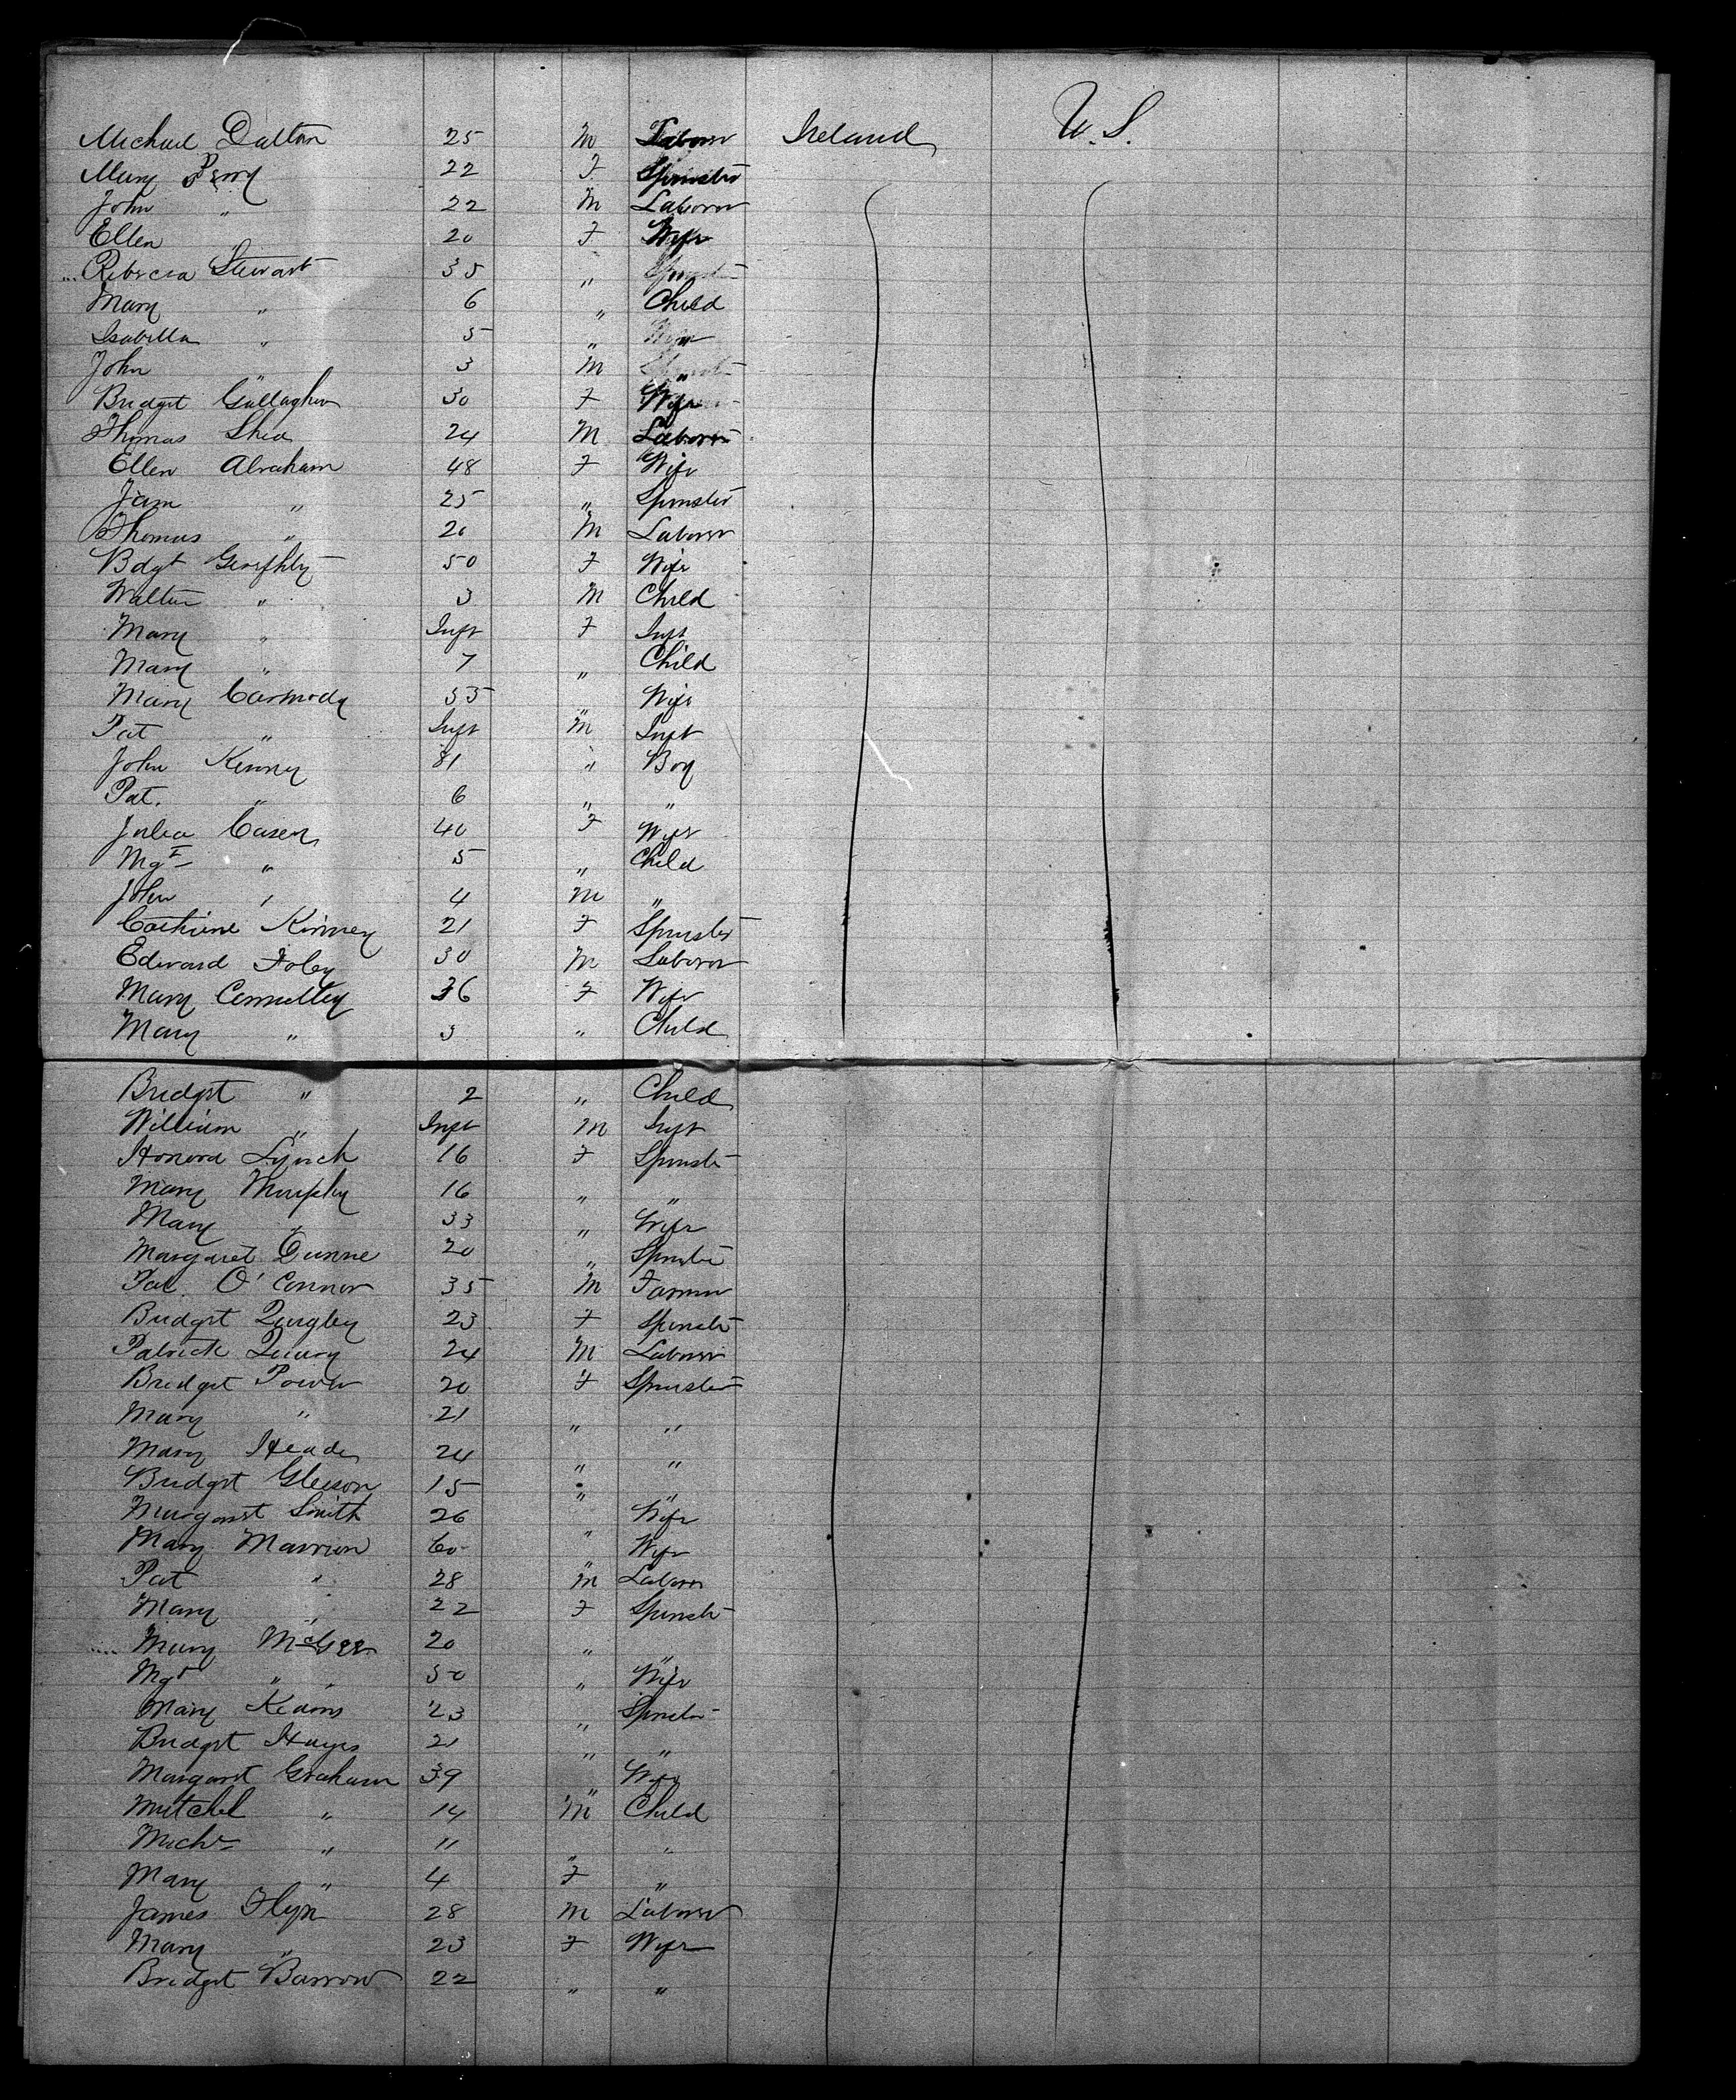 Michael Dalton 25 M Laborer Ireland U.S.
Mary Perry 22 F Spinster
John " 22 M Laborer
Ellen " 20 F Wife
Rebecca Stewart 35 " Spinster
Mary " 6 " Child
Isabella " 5 " "
John " 3 M "
Bridget Gallagher 30 F Wife
Thomas Shea 24 M Laborer
Ellen Abraham 48 F Wife
Jam " 25 " Spinster
Thomas " 20 M Laborer
Bdgt 50 F Wife
Walter " 3 M Child
Mary " Inft F Inft
Mary " 7 " Child
Mary Carmody 35 " Wife
Pat " Inft M Inft
John Kenney 81 " Boy
Pat. " 6 " "
Julia Casey 40 F Wife
Mgt " 5 " Child
John " 4 M "
Cathrine Kinney 21 F Spinster
Edward Foley 30 M Laborer
Mary Connelley 36 F Wife
Mary " 3 " Child
Bridget " 2 " Child
William " Inft M Inft
Honora Lynch 16 F Spinster
Mary Murphy 16 " "
Mary " 33 " Wife
Margaret Dunne 20 " Spinster
Pat. O'Connor 35 M Farmer
Bridget Quigley 23 F Spinster
Patrick 24 M Laborer
Bridget Power 20 F Spinster
Mary " 21 " "
Mary Heade 24 " "
Bridget Gleeson 15 " "
Margaret Smith 26 " Wife
Mary Marrion 60 " Wife
Pat " 28 M Laborer
Mary " 22 F Spinster
Mary McGee 20 " "
Mgt " " 50 " Wife
Mary Keams 23 " Spinster
Bridget Hayes 21 " "
Margaret Graham 39 " Wife
Mitchel " 14 M Child
Michl " 11 " "
Mary " 4 F "
James Flyn 28 M Laborer
Mary " 23 F Wife
Bridget Barrow 22 " "